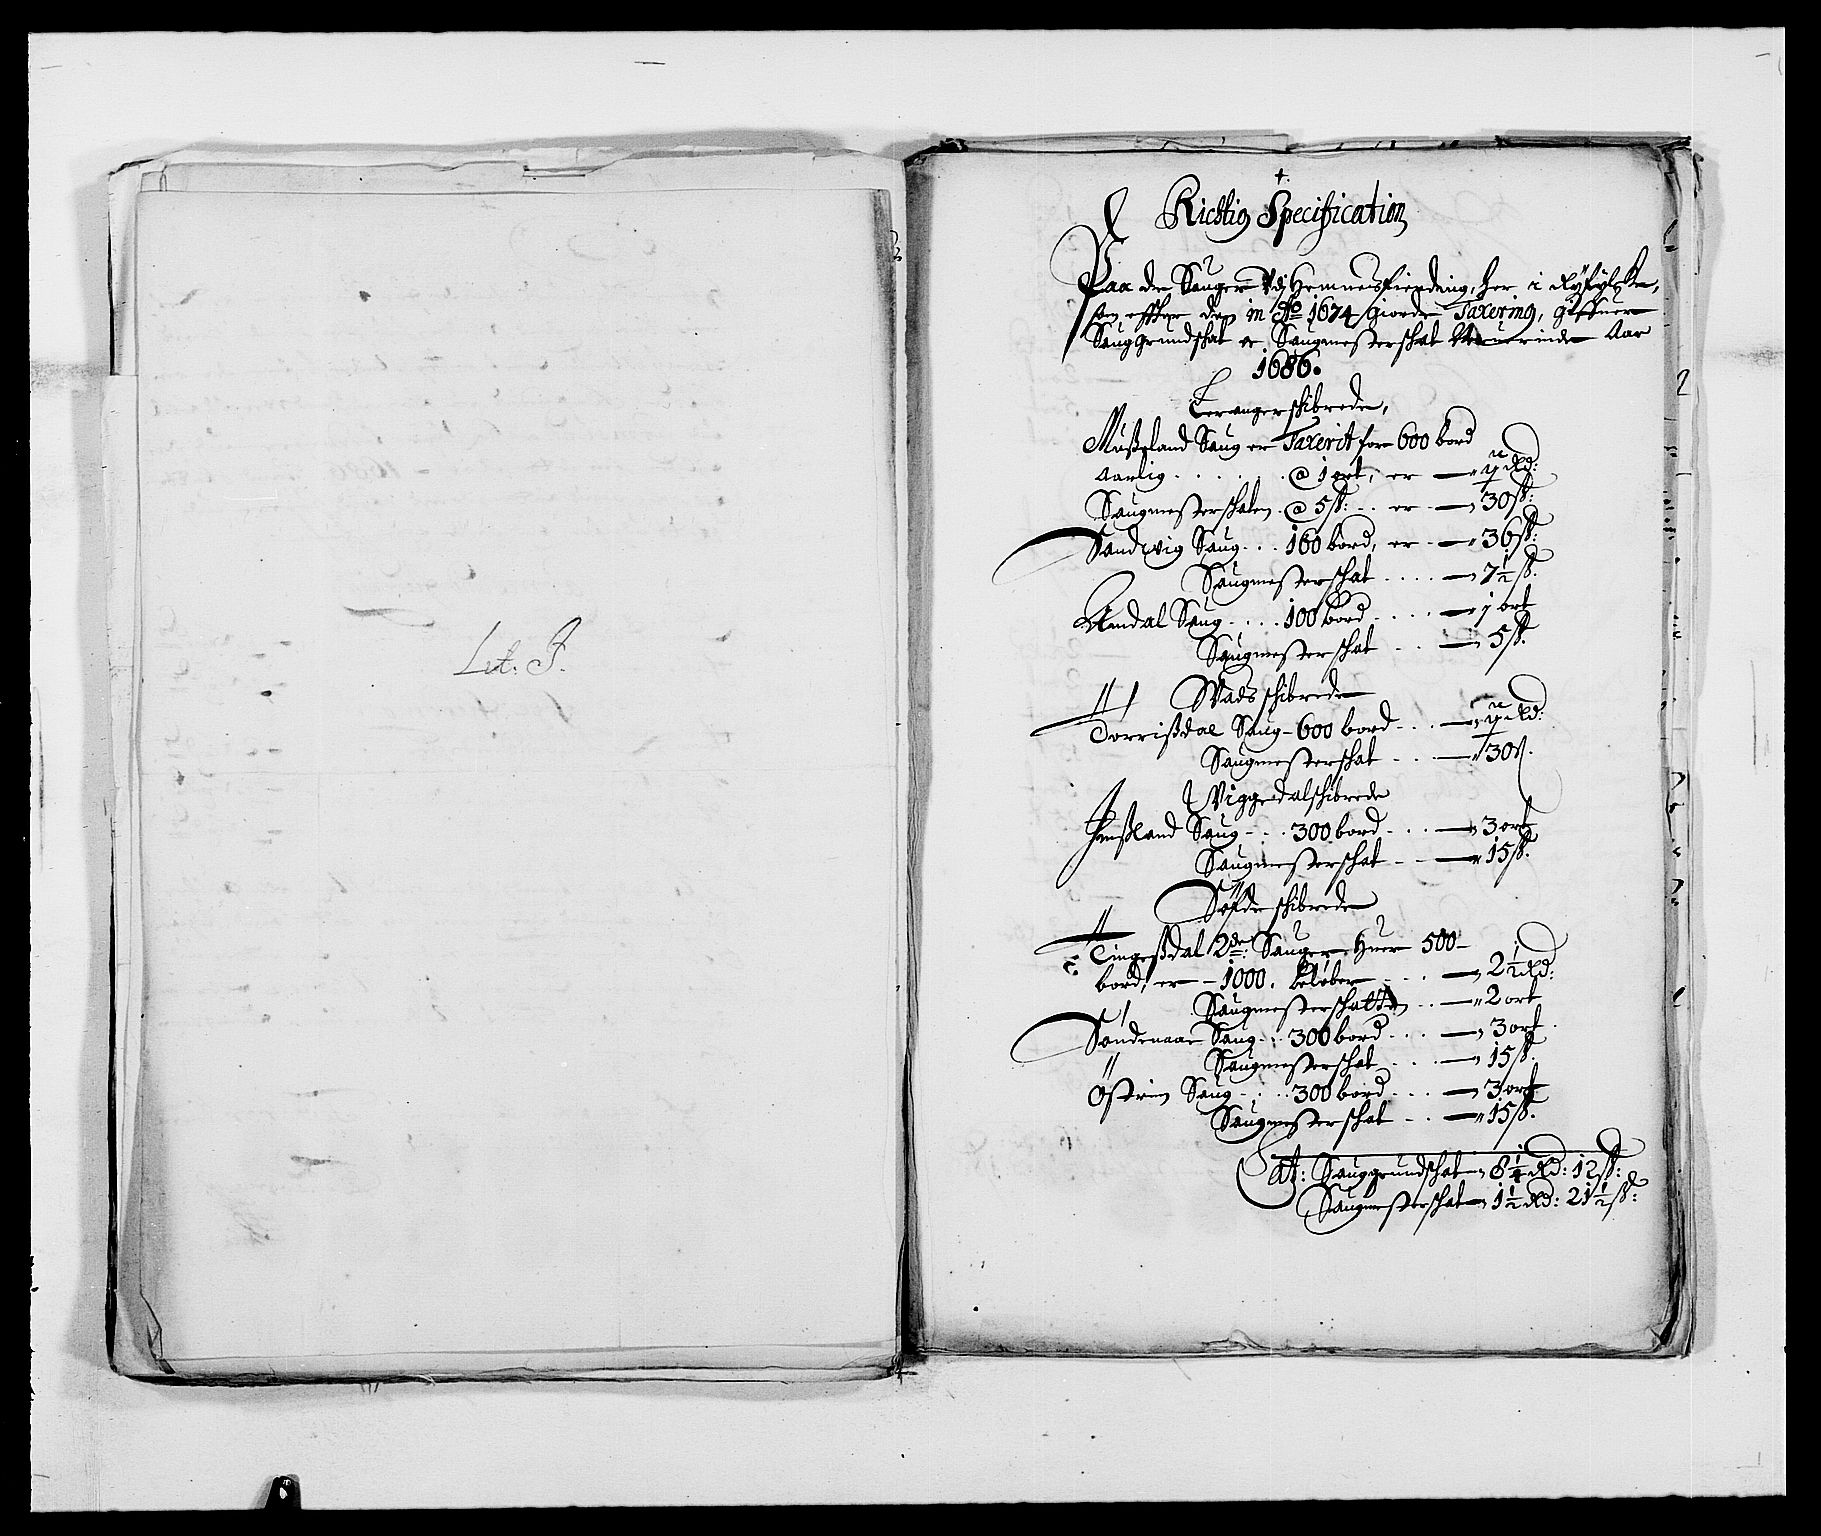 Lit: J.
Richtig Specification
Paa de Sauger Udj Hemnesfierding, her i Ryfylke
efter den in Ao 1674 giorde Taxering, gifuer
Saug grundschat oc Saugmesterschat Aar
1686.
Leranger schibrede,
Mussland Saug er Taxerit for 600 bord
Aarlig . . . . . . @ 1 ort, er — Rd:
Saugmesterschaten @ 5 ß: . . er — 30 ß:
Sandwig Saug . . . 160 bord, er — 36 ß:
Saugmesterschat . . . . — 7½ ß.
Aandal Saug . . . . 100 bord . . . . — 1 ort
Saugmesterschat . . — 5 ß.
Wads schibrede
Torrisdal Saug — 600 bord . . . — Rd:
Saugmesterschat . . . — 30 ß.
Wiggedal schibrede
Saug . . . 300 bord . . . — 3 ort
Saugmesterschat . . — 15 ß.
Søfde schibrede
Tingesdal 2de: Sauger, Huer 500
bord, er — 1000. beløber . . . — 2½ Rd:
Saugmesterschatten . . — 2 ort
Søndenaae Saug . . . 300 bord . . . — 3 ort
Saugmesterschat . . . — 15 ß.
Østrim Saug . . . 300 bord . . . — 3 ort
Saugmesterschat . . — 15 ß.
Lat: Sauggrundschat 8¼ Rd: 12 ß:
Saugmesterschat 1½ Rd: 21½ ß: